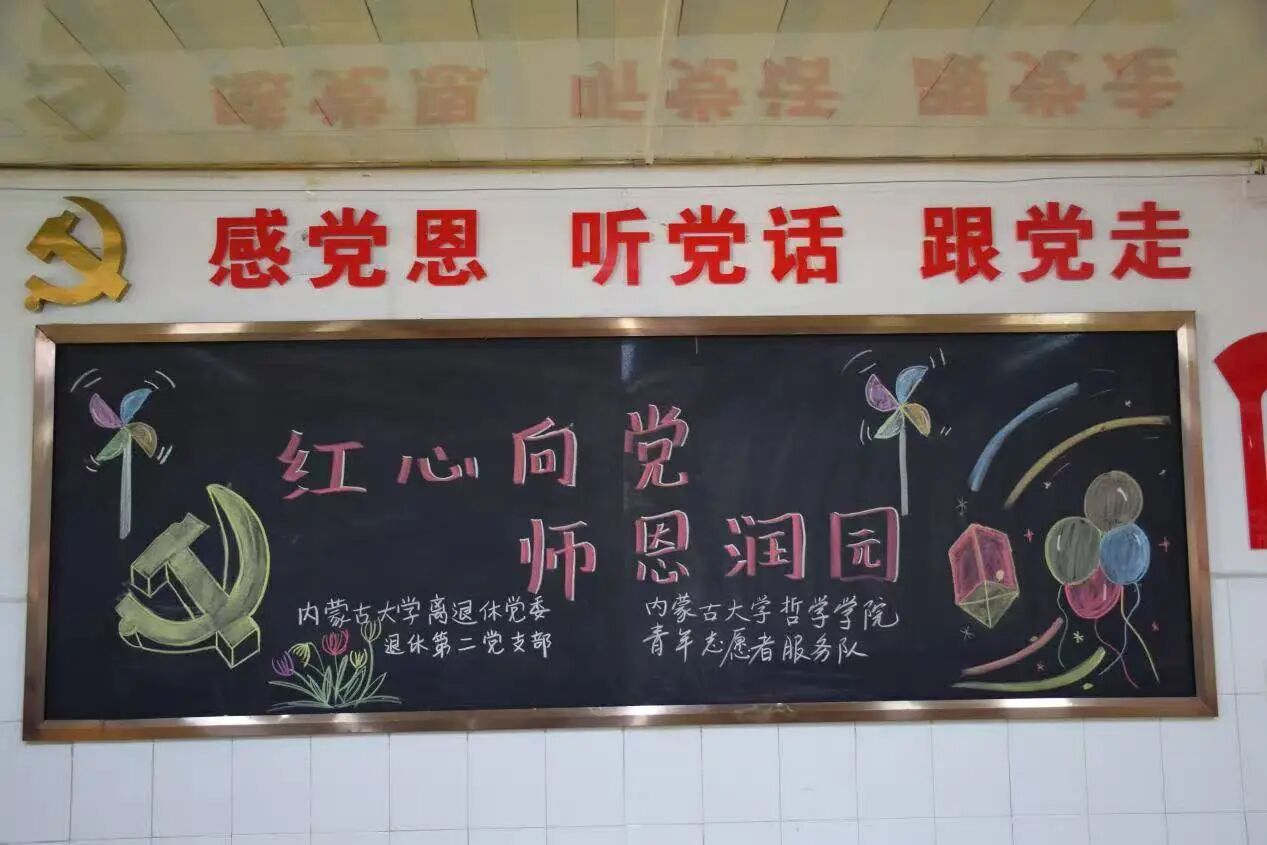 感党恩 听党话 跟党走
红心向党
师恩润园
内蒙古大学离退休党委
退休第二党支部
内蒙古大学哲学学院
青年志愿者服务队